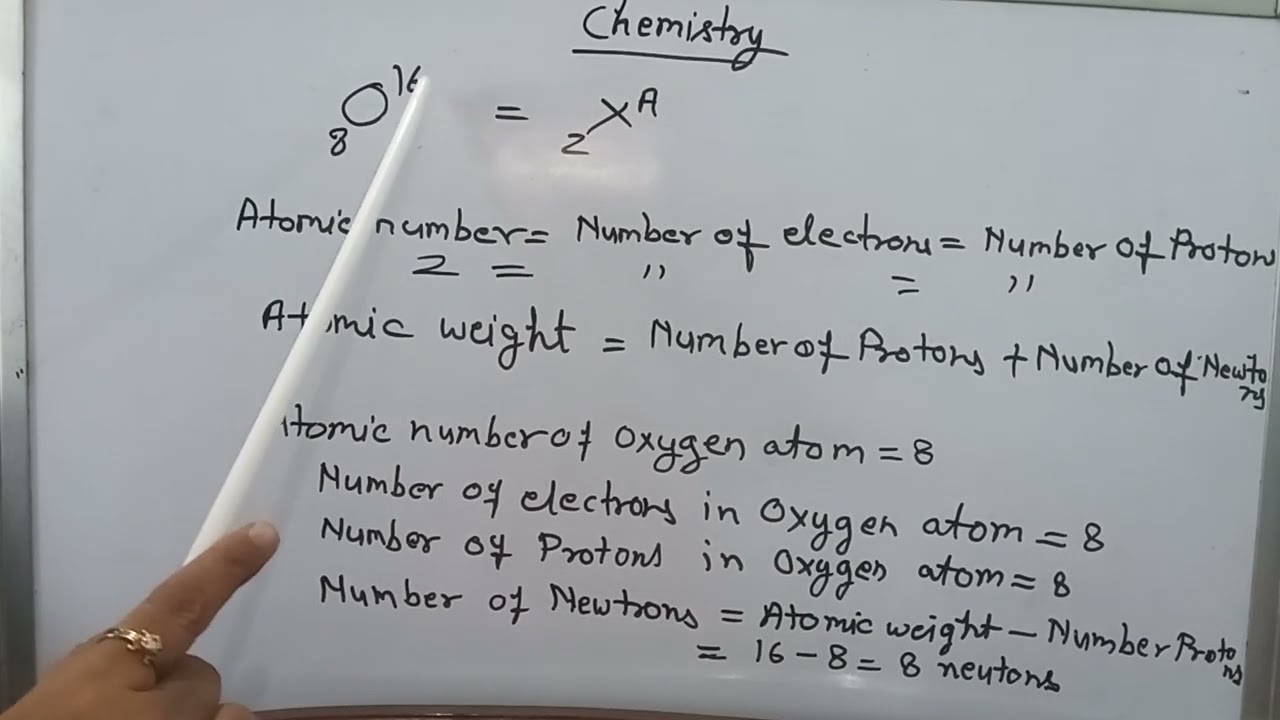 Chemistry
8O16 = ZXA
Atomic number = Number of electrons = Number of Protons
Z = " = "
Atomic weight = Number of Protons + Number of Newtons
Atomic number of Oxygen atom = 8
Number of electrons in Oxygen atom = 8
Number of Protons in Oxygen atom = 8
Number of Newtrons = Atomic weight - Number Protons
= 16 - 8 = 8 neutons